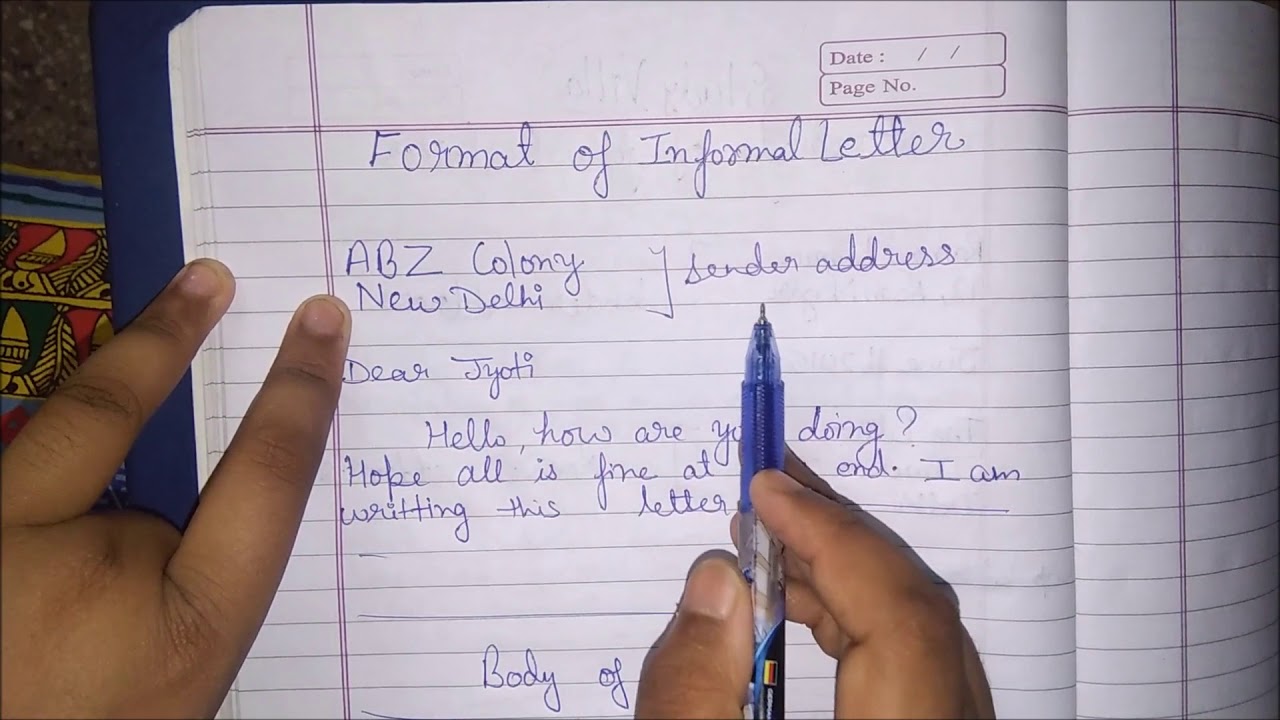 Date : / /
Page No.
Format of Informal Letter
ABZ Colony } Sender address
New Delhi
Dear Jyoti
Hello, how are doing?
Hope all is fine at end. I am
writting this letter
Body of